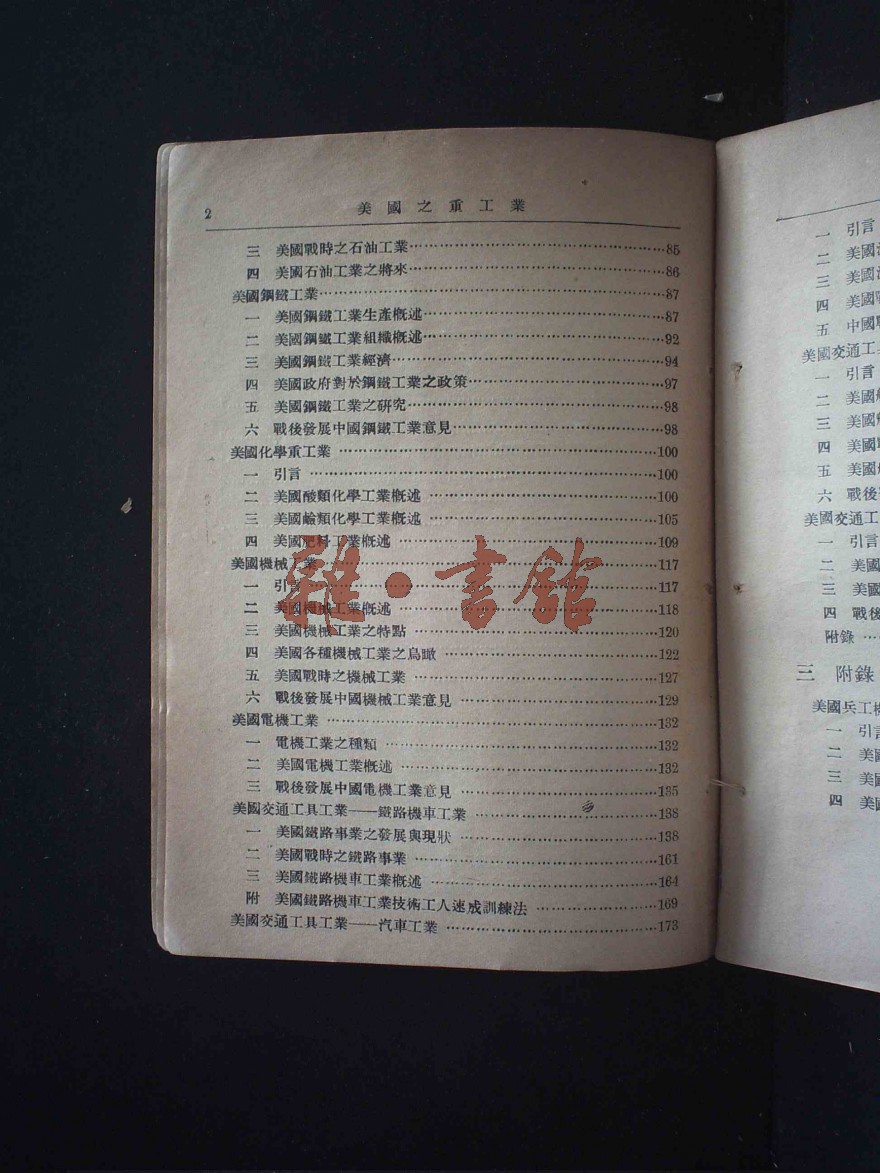 2
美國之重工業
三 美國戰時之石油工業……85
四 美國石油工業之將來……86
美國鋼鐵工業……87
一 美國鋼鐵工業生產概述……87
二 美國鋼鐵工業組織概述……92
三 美國鋼鐵工業經濟……94
四 美國政府對於鋼鐵工業之政策……97
五 美國鋼鐵工業之研究……98
六 戰後發展中國鋼鐵工業意見……98
美國化學重工業……100
一 引言……100
二 美國酸類化學工業概述……100
三 美國鹼類化學工業概述……105
四 美國肥料工業概述……109
美國機械工業……117
一 引言……117
二 美國機械工業概述……118
三 美國機械工業之特點……120
四 美國各種機械工業之鳥瞰……122
五 美國戰時之機械工業……127
六 戰後發展中國機械工業意見……129
美國電機工業……132
一 電機工業之種類……132
二 美國電機工業概述……132
三 戰後發展中國電機工業意見……135
美國交通工具工業——鐵路機車工業……138
一 美國鐵路事業之發展與現狀……138
二 美國戰時之鐵路事業……161
三 美國鐵路機車工業概述……164
附 美國鐵路機車工業技術工人速成訓練法……169
美國交通工具工業——汽車工業……173
雜·書館
一 引言
二 美國
三 美國
四 美國
五 中國
美國交通工
一 引言
二 美國
三 美國
四 美國
五 美國
六 戰後
美國交通工
一 引言
二 美國
三 美國
四 戰後
附錄……
三 附錄
美國兵工
一 引
二 美國
三 美國
四 美國